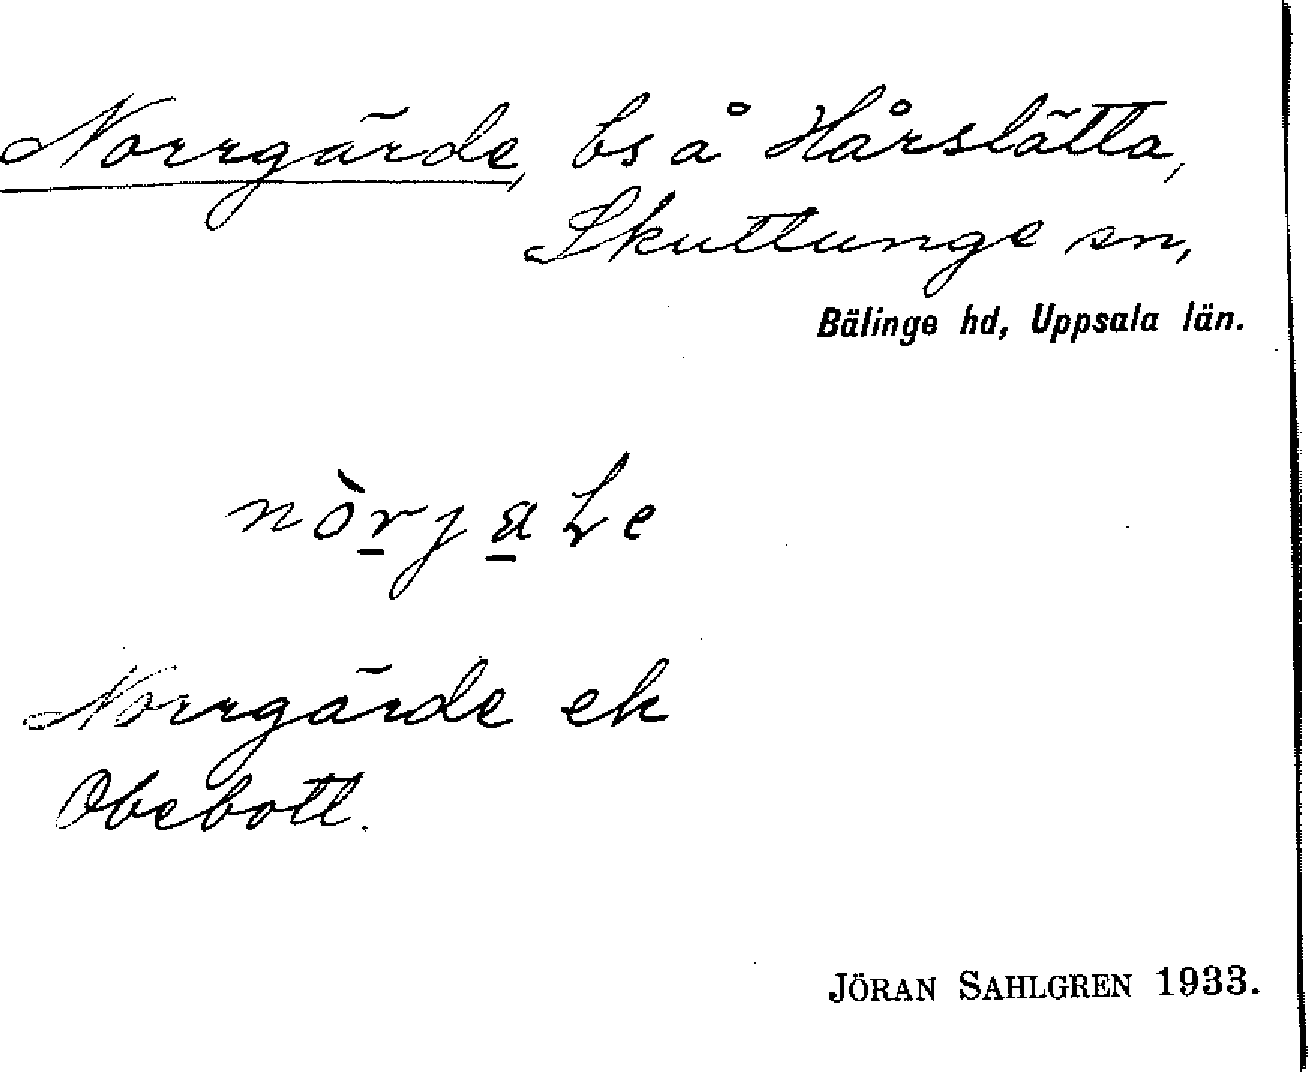 Norrgärde, bs å Hårslätta,
Skuttunge sn,
Bälinge hd, Uppsala län.
nòrjaLe
Norrgärde ek
Obebott.
JÖRAN SAHLGREN 1933.